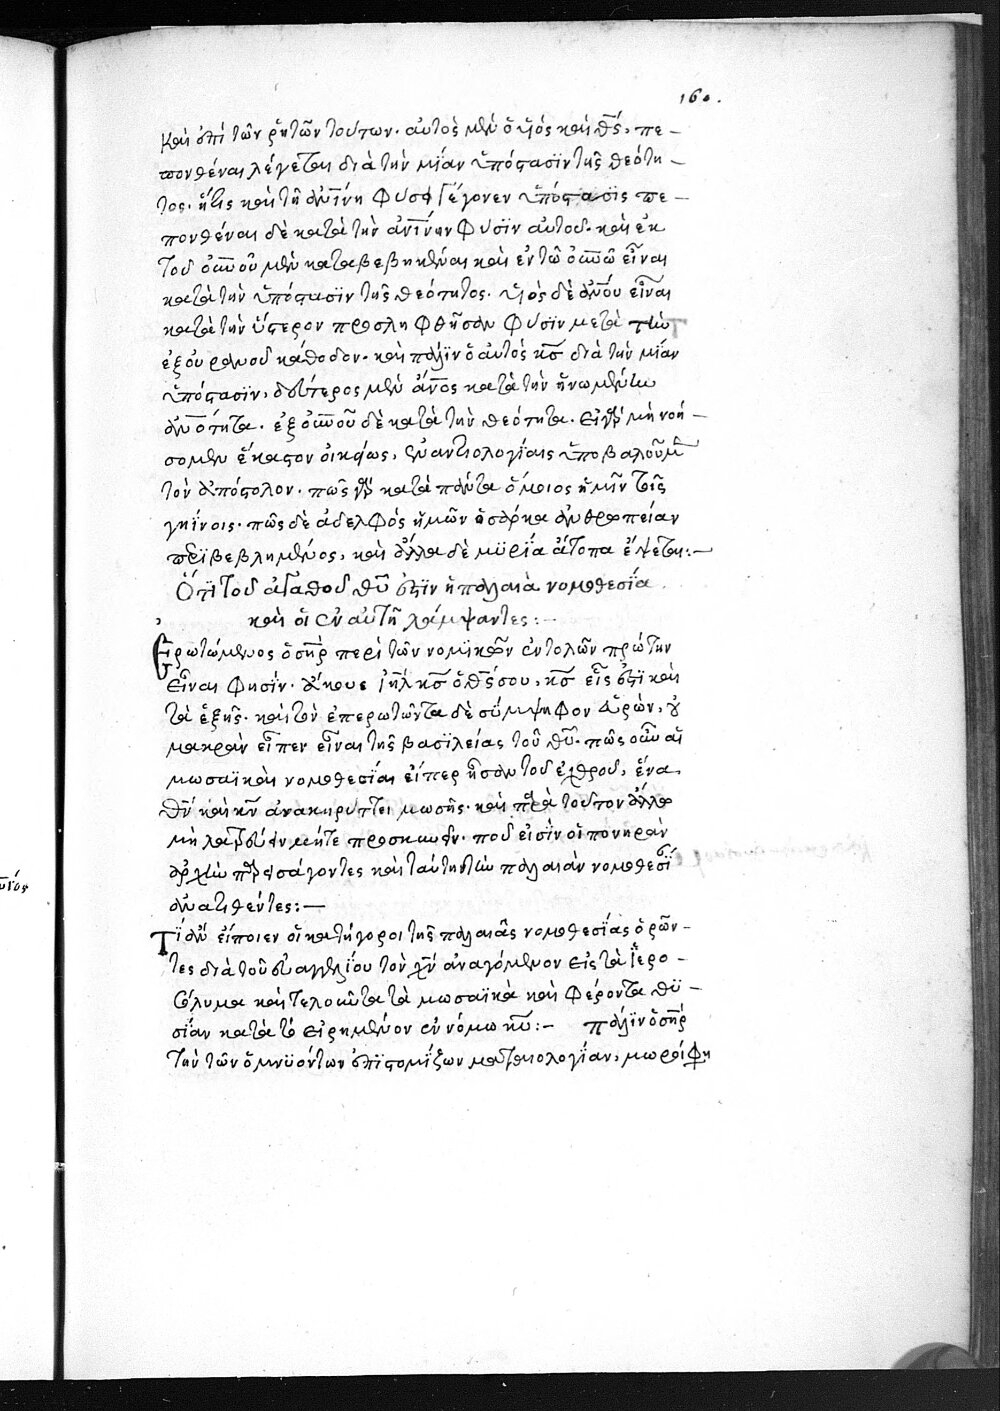 160.
καὶ ἐπὶ τῶν ῥητῶν τούτων· αὐτὸς μὲν ὁ υἱός καὶ θς, πε-
πονθέναι λέγεται διὰ τὴν μίαν ὑπόστασϊν τῆς θεότη-
τος· ἥτις καὶ τῆ ἀνίνη φύσει γέγονεν ὑπόστασϊς πε-
πονθέναι δὲ κατὰ τὴν ἀνίνην φύσϊν αὐτοῦ· καὶ ἐκ
τοῦ οὐνοῦ μὲν καταβεβηκέναι καὶ ἐν τῶ οὐνῶ εἶναι
κατὰ τὴν ὑπόστασϊν τῆς θεότητος· υἱὸς δὲ ἀνου εἶναι
κατὰ τὴν ὕστερον προσληφθῆσαν φύσϊν μετὰ τὴν
ἐξ οὐρανοῦ κάθοδον· καὶ πάλϊν ὁ αὐτὸς κς διὰ τὴν μίαν
ὑπόστασϊν, δεύτερος μὲν ἄνος κατὰ τὴν ἡνωμένην
ἀνότητα· ἐξ οὐνοῦ δὲ κατὰ τὴν θεότητα· εἰ γὰρ μὴ νοή-
σομεν ἕκαστον οἰκείως, ἐναντιολογίαις ὑποβαλοῦμεν
τὸν ἀπόστολον· πῶς γὰρ κατὰ πάντα ὅμοιος ἡμῖν τοῖς
γηΐνοις· πῶς δὲ ἀδελφὸς ἡμῶν ὁ σάρκα ἀνθρωπείαν
περϊβεβλημένος, καὶ ἄλλα δὲ μϋρία ἄτοπα ἕψεται:-
Ὅτϊ τοῦ ἀγαθοῦ θυ ἐστϊν ἡ παλαιὰ νομοθεσία
καὶ οἱ ἐν αὐτῆ λάμψαντες:-
Ἐρωτώμενος ὁ σηρ περὶ τῶν νομϊκῶν ἐντολῶν πρώτην
εἶναι φησίν· ἄκουε ιηλ κς ὁ θς σου, κς εἷς ἐστϊ καὶ
τὰ ἑξῆς· καὶ τὸν ἐπερωτῶντα δὲ σύμψηφον εὑρὼν, οὐ
μακρὰν εἶπεν εἶναι τῆς βασιλείας τοῦ θυ· πῶς οὖν αἱ
μωσαϊκαὶ νομοθεσίαι εἴπερ ἦσαν τοῦ ἐχθροῦ, ἕνα
θν καὶ κν ἀνακηρύττει μωσῆς· καὶ παρὰ τοῦτον ἄλλο
μὴ λατρεύειν μήτε προσκυνεῖν· ποῦ εἰσϊν οἱ πονηρὰν
ἀρχὴν παρεισάγοντες καὶ ταύτη τὴν παλαιὰν νομοθεσί
ἀνατιθέντες:-
Τϊ ἂν εἴποιεν οἱ κατήγοροι τῆς παλαιᾶς νομοθεσίας ὁρῶν-
τες διὰ τοῦ εὐαγγελίου τὸν χν ἀναγόμενον εἰς τὰ ἱερο-
σόλυμα καὶ τελοῦντα τὰ μωσαϊκὰ καὶ φέροντα θϋ-
σίαν κατὰ τὸ εἰρημένον ἐν νόμω κυ:- πάλϊν ὁ σηρ
τὴν τῶν ὀμνϋόντων ἐπϊστομίζων ματαιολογίαν, μωροί φη